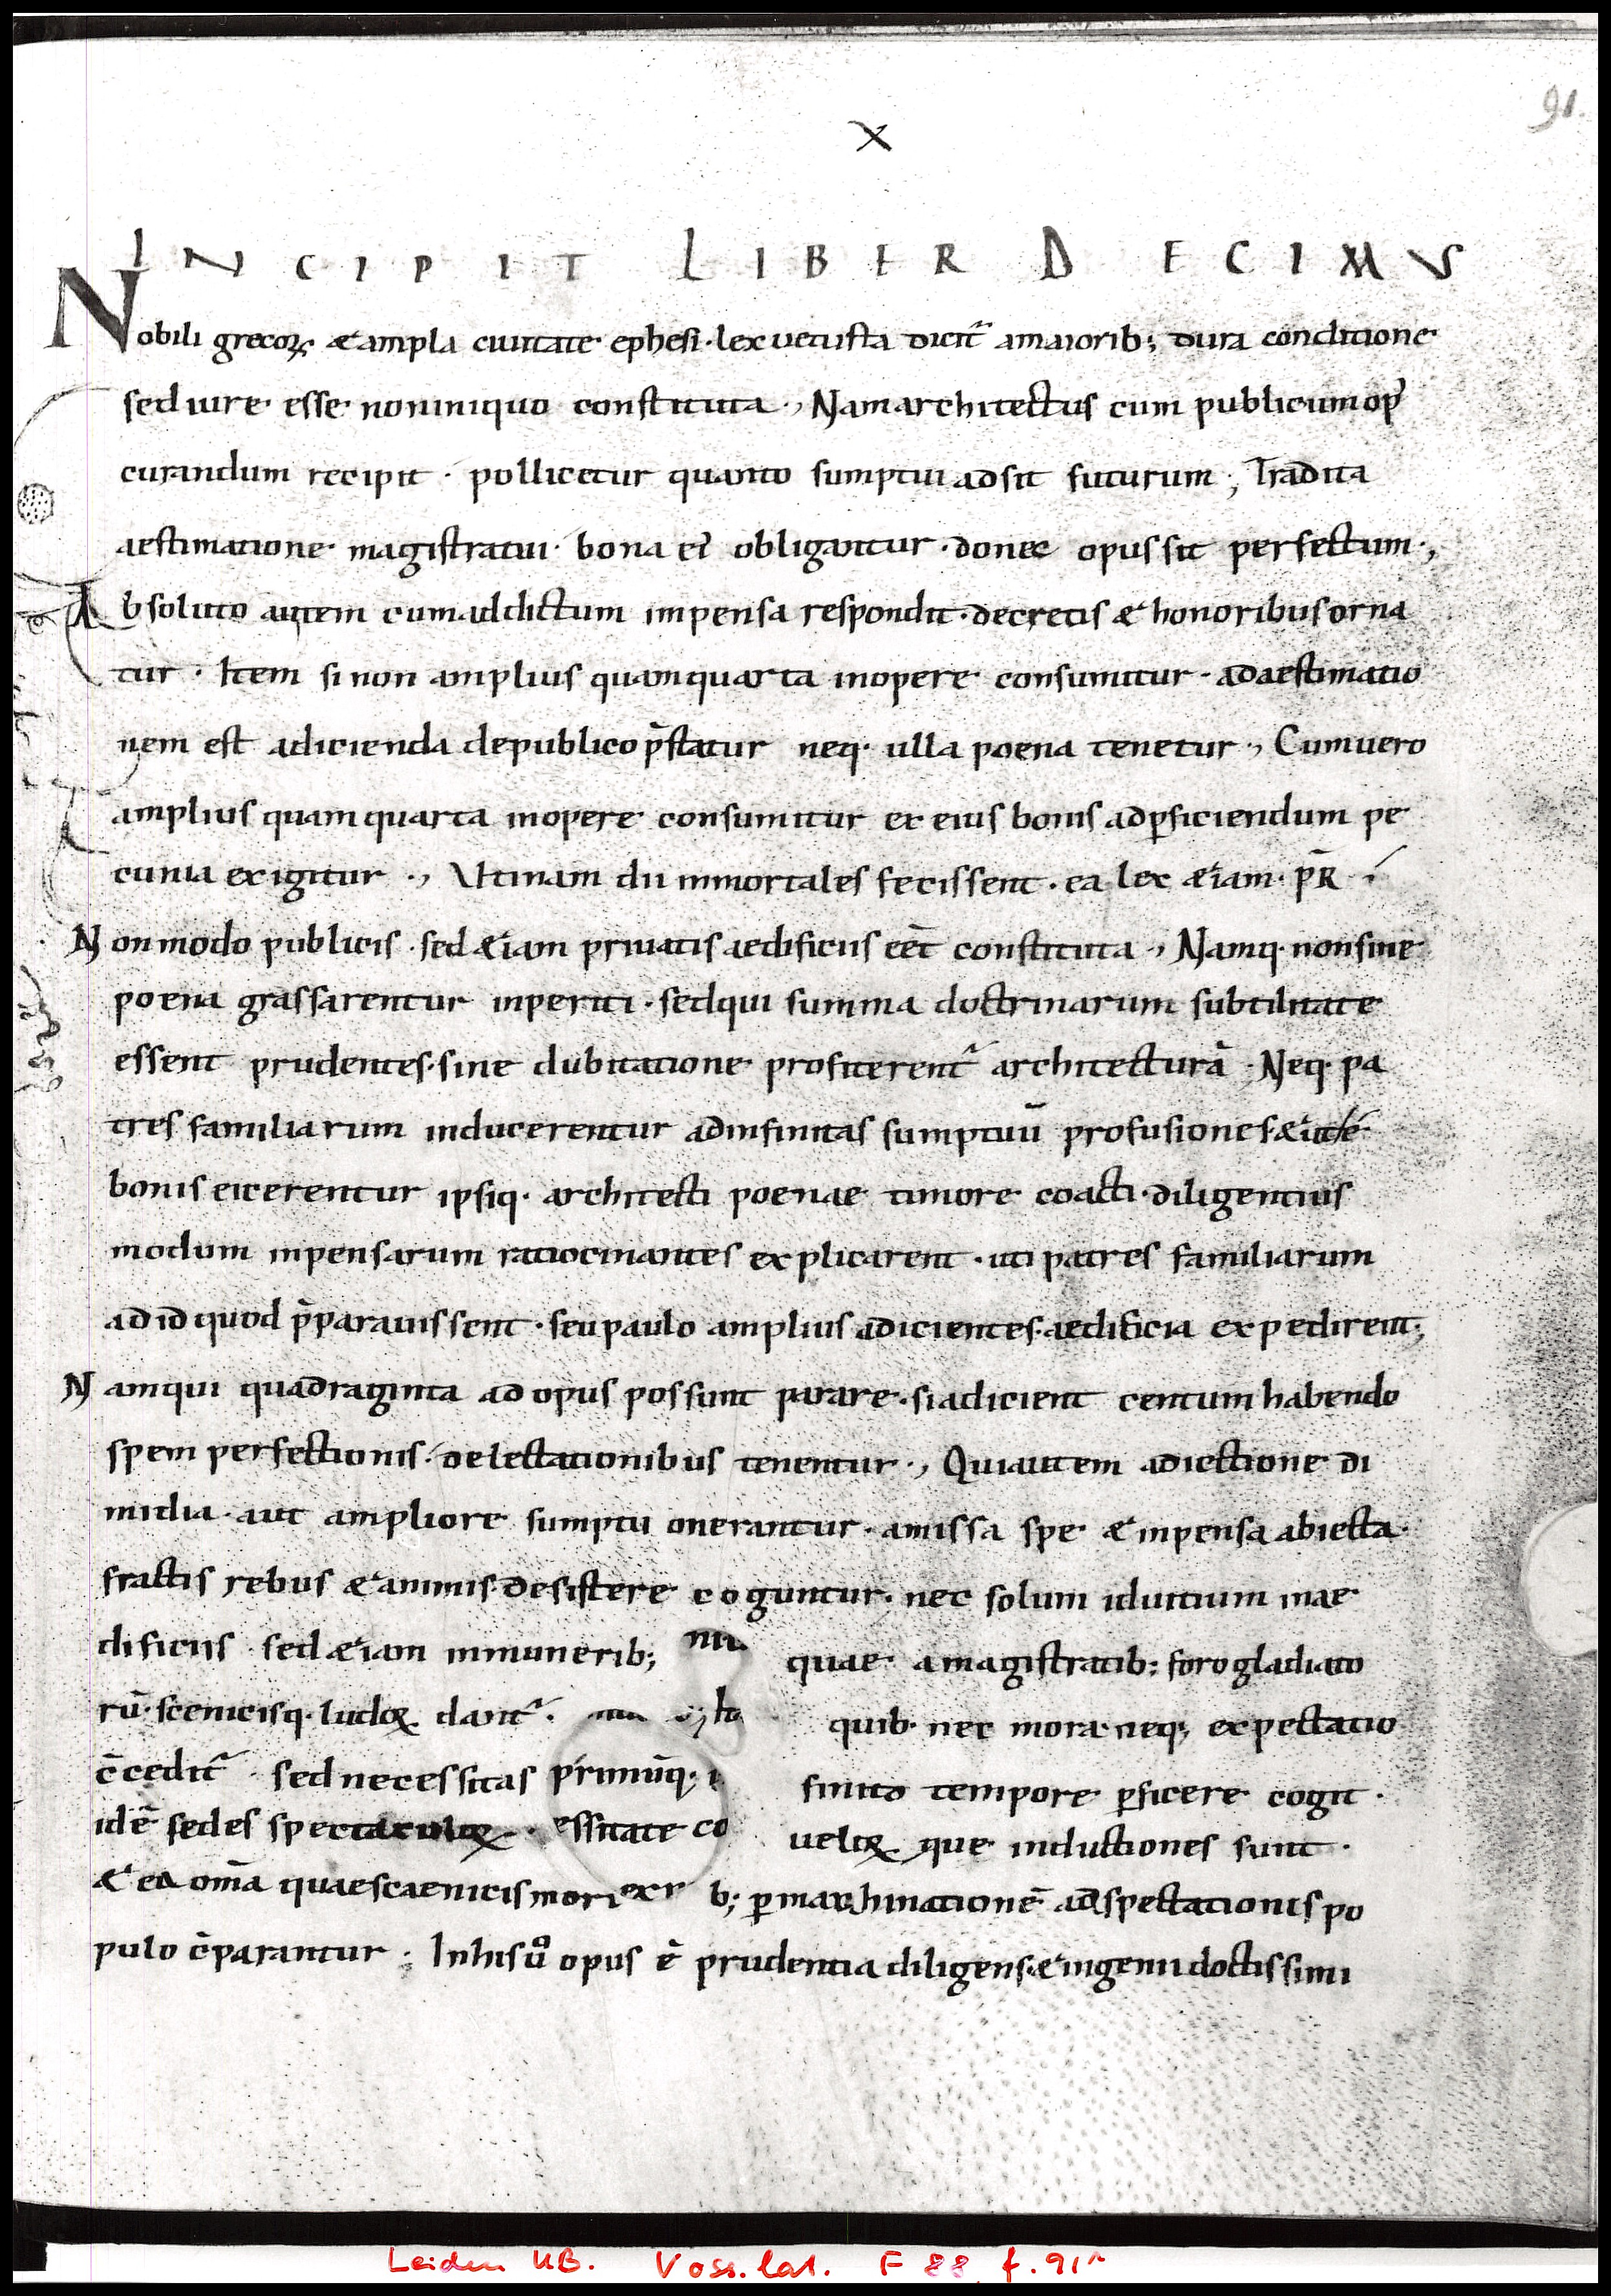 91.
X
INCIPIT LIBER DECIMVS
Nobili grecoꝝ & ampla ciuitate ephesi · lex uetusta dicit᷑ a maiorib; dura conditione
sed iure esse non iniquo constituta ·, Nam architectus cum publicum opꝰ
curandum recipit · pollicetur quanto sumptui ad sit futurum ; Tradita
aestimatione magistratui · bona ei obligantur · donec opus sit perfectum ·,
Absoluto autem cum ad dictum impensa respondit · decretis & honoribus orna
tur · Item si non amplius quam quarta in opere consumitur · ad aestimatio
nem est adicienda de publico p̄statur neq· ulla poena tenetur ·, Cum uero
amplius quam quarta in opere consumitur ex eius bonis ad ꝑficiendum pe
cunia exigitur ·, Vtinam dii inmortales fecissent · ea lex &iam · p̄ R
Non modo publicis · sed &iam priuatis aedificiis eēt constituta ·, Namq· non sine
poena grassarentur inperiti · sed qui summa doctrinarum subtilitate
essent prudentes · sine dubitatione profiterent᷑ architecturā · Neq· pa
tres familiarum inducerentur ad infinitas sumptuū profusiones &
bonis eicerentur ipsiq· architecti poenae timore coacti · diligentius
modum inpensarum ratiocinantes explicarent · uti patres familiarum
ad id quod p̄parauissent · seu paulo amplius adicientes · aedificia expedirent;
Nam qui quadraginta ad opus possunt parare · si adicient centum habendo
spem perfectionis · delectationibus tenentur ·, Qui autem adiectione di
midia · aut ampliore sumptu onerantur · amissa spe & inpensa abiecta ·
fractis rebus & animis · desistere coguntur · nec solum id uitium in ae
dificiis · sed &iam in munerib; quae a magistratib; foro gladiato
rū · scenicisq· ludoꝝ dant᷑ · quib· nec mora · neq; expectatio
c̄cedit᷑ · sed necessitas finito tempore ꝑficere cogit ·
idē sedes spectaculoꝝ · ueloꝝ que inductiones sunt ·
& ea om̄a quae scaenicis mori b; ꝑ machinationē ad spectationis po
pulo c̄parantur ; In his ū opus ē prudentia diligens · & ingenii doctissimi
Leiden UB. Voss. lat. F 88 f. 91r